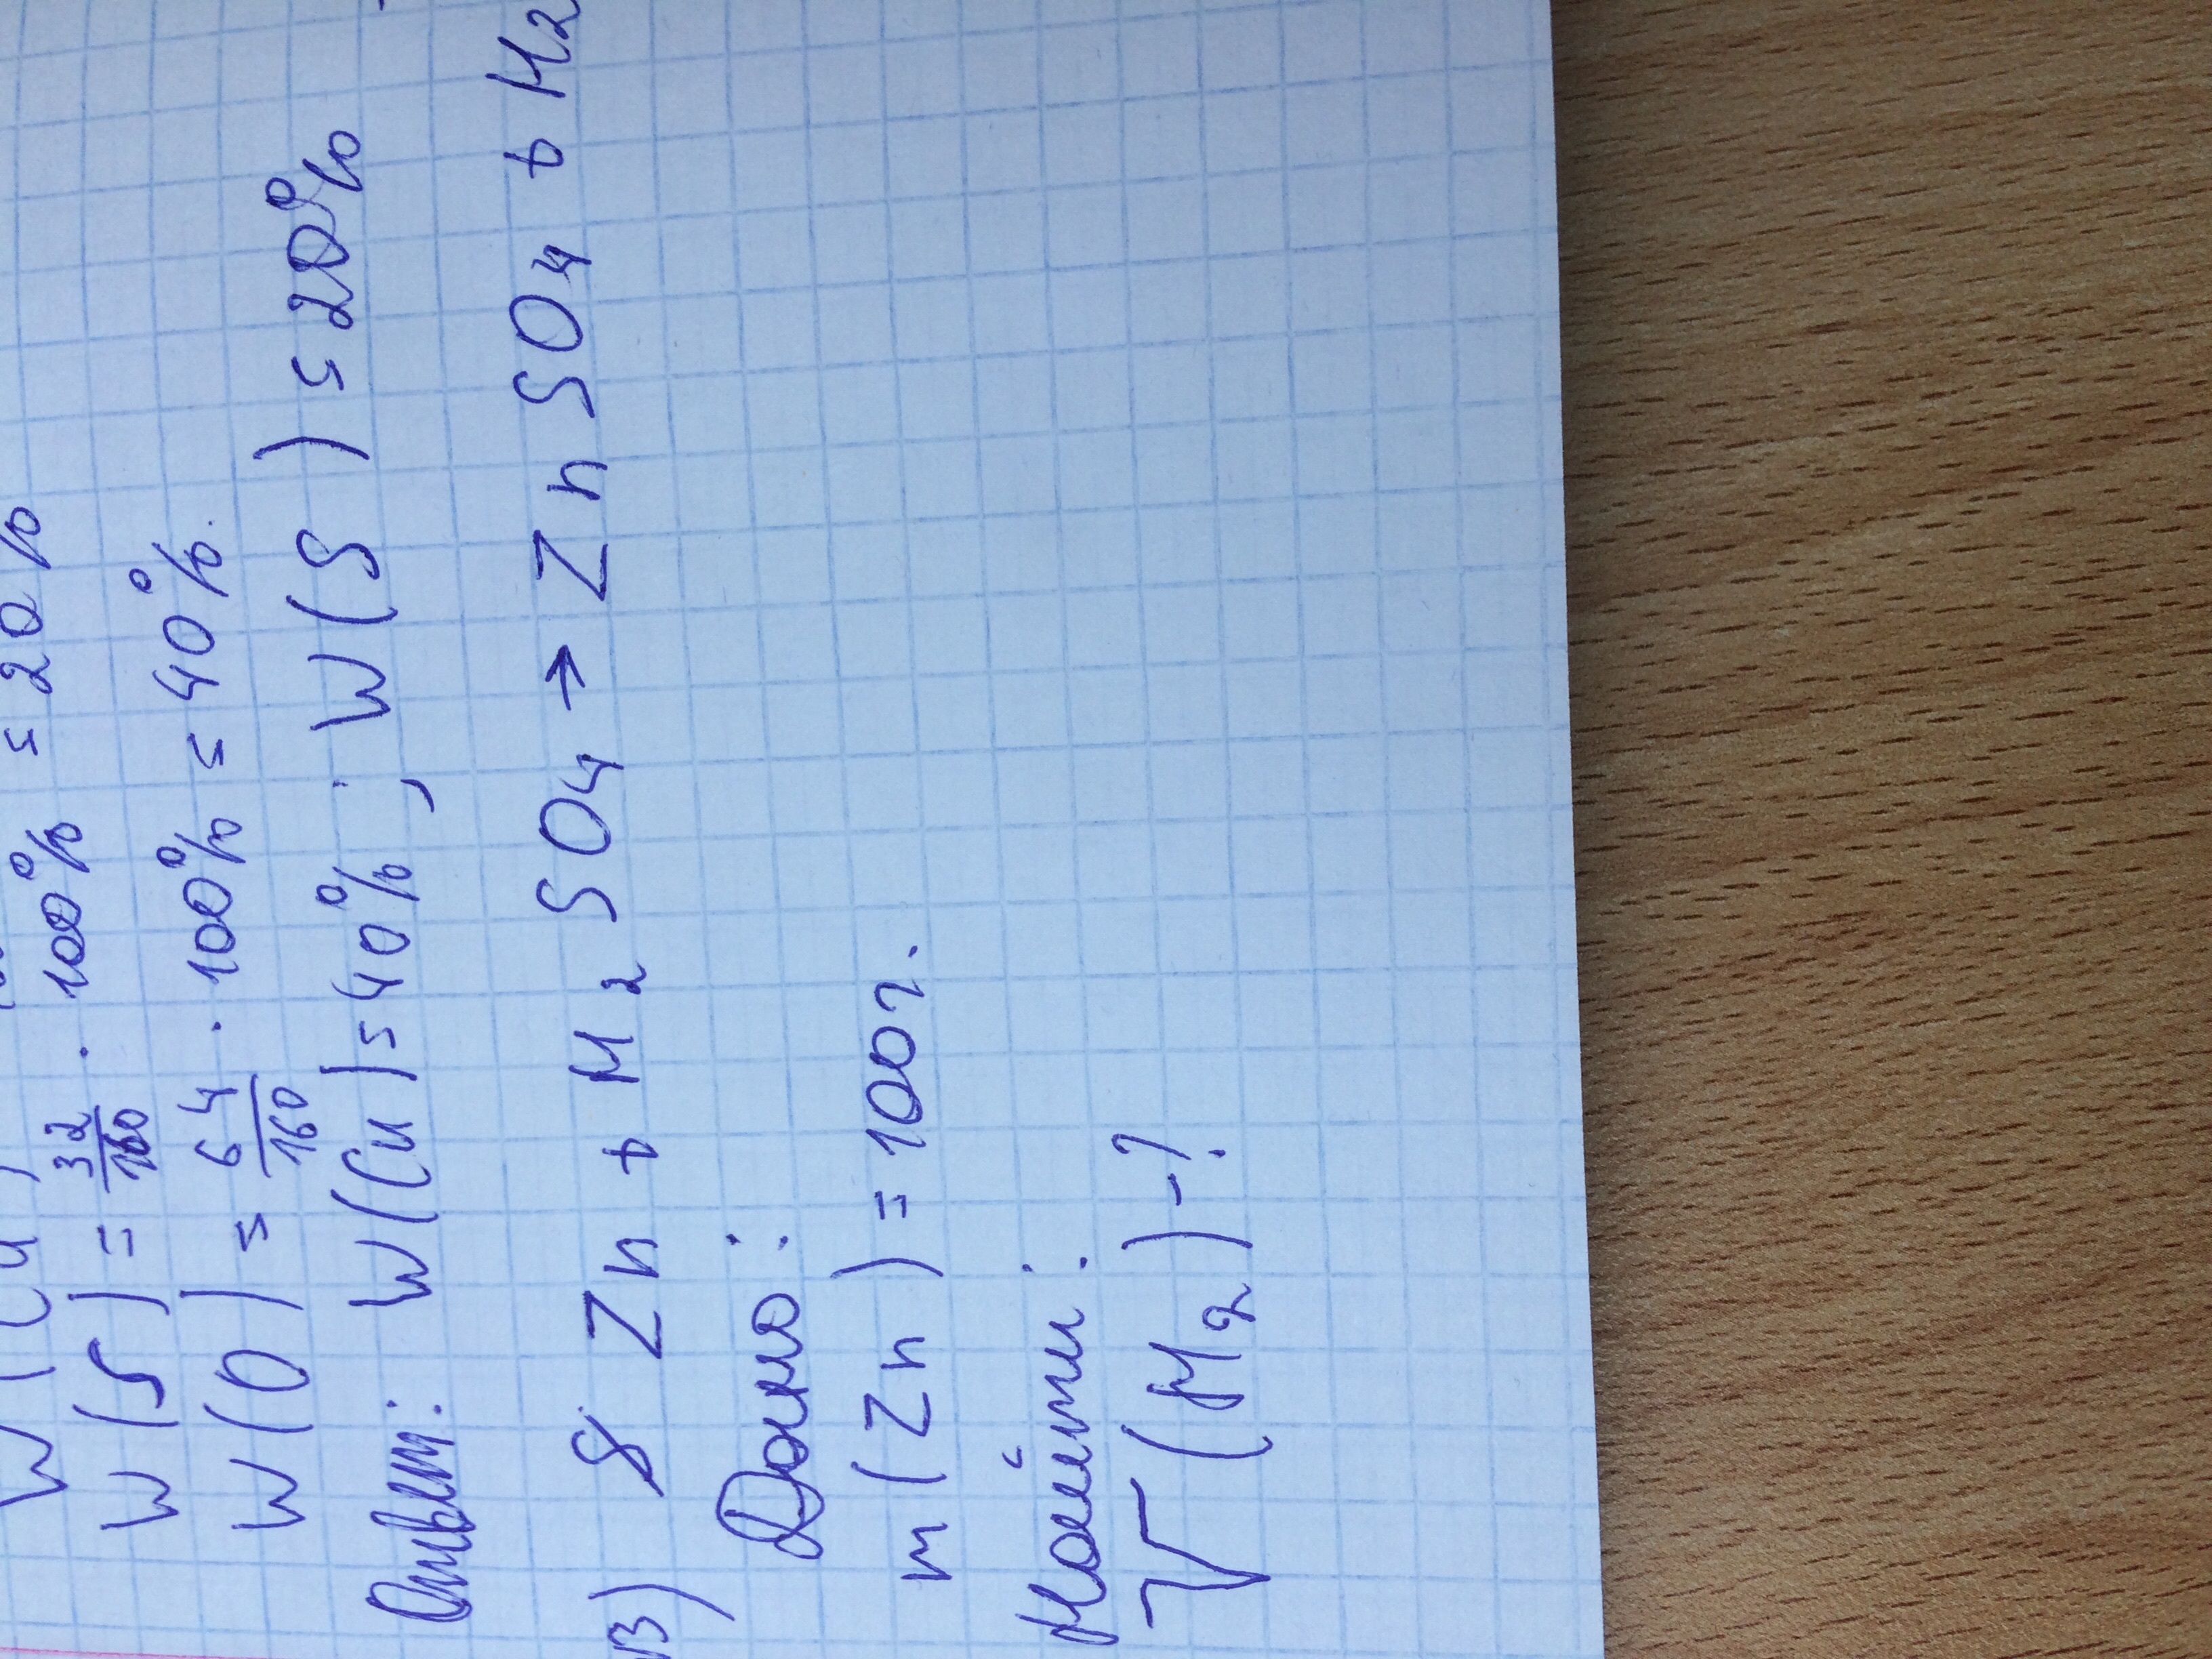 W(S) = 32/160 · 100% = 20%
W(O) = 64/160 · 100% = 40%.
Ответ: W(Cu) = 40%; W(S) = 20%
№3) Zn + H2SO4 → ZnSO4 + H2
Дано:
m(Zn) = 100г.
Найти:
V(H2) - ?